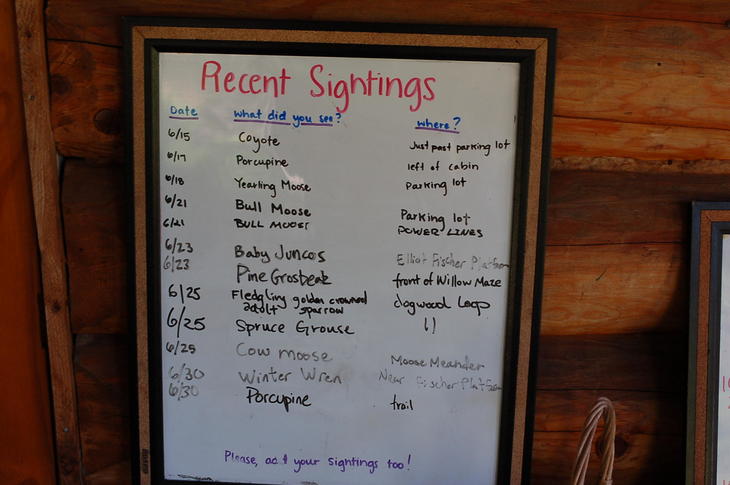 Recent Sightings
Date What did you see? Where?
6/15 Coyote Just past parking lot
6/17 Porcupine left of cabin
6/18 Yearling Moose Parking lot
6/21 Bull Moose Parking lot
6/21 BULL MOOSE POWER LINES
6/23 Baby Juncos Elliot Fischer Platform
6/23 Pine Grosbeak front of Willow Maze
6/25 Fledgling golden crowned dogwood Loop
adult sparrow
6/25 Spruce Grouse 11
6/25 Cow moose Moose Meander
6/30 Winter Wren Near Fischer Platform
6/30 Porcupine trail
Please, add your sightings too!